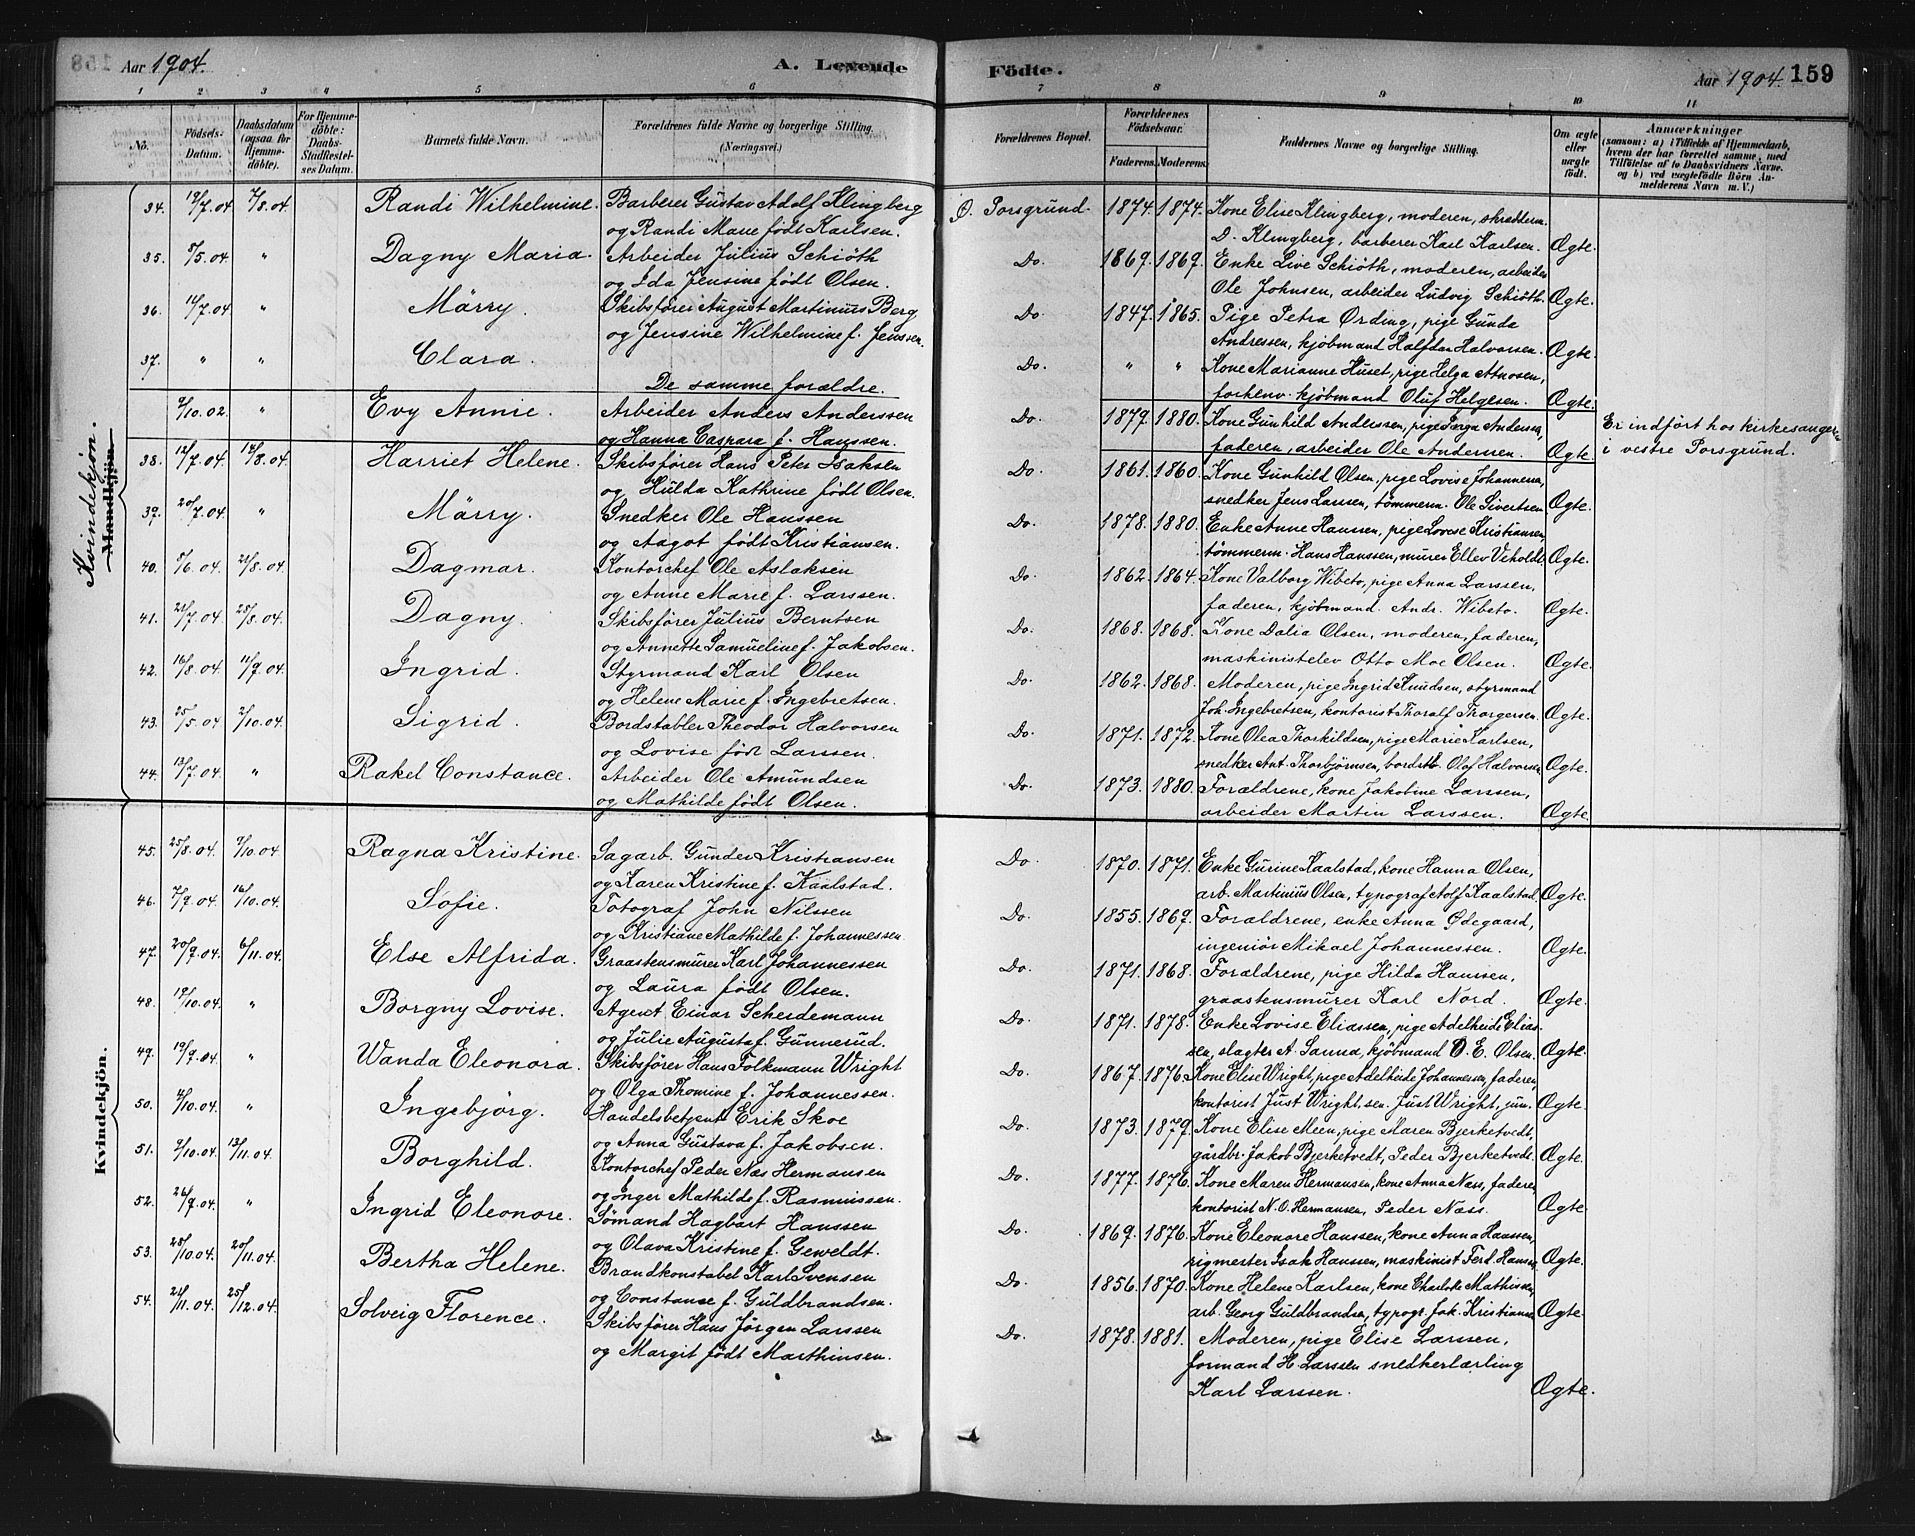 Aar 1904. A. Levende Födte. Aar 1904. 159
1 2 3 4 5 6 7 8 9 10 11
No. Födsels-Datum. Daabsdatum (ogsaa for Hjemme-döbte). For Hjemme-döbte: Daabs-Stadfæstel-ses Datum. Barnets fulde Navn. Forældrenes fulde Navne og borgerlige Stilling. (Næringsvei.) Forældrenes Bopæl. Forældrenes Födselsaar. Faderens. Moderens. Faddernes Navne og borgerlige Stilling. Om ægte eller uægte födt. Anmærkninger (saasom: a) i Tilfælde af Hjemmedaab, hvem der har forrettet samme, med Tilföielse af to Daabsvidners Navne. og b) ved uægtefödte Börn An-melderens Navn m. V.)
Kvindekjøn.
Mandkjön.
34. 19/7.04 7/8.04. Randi Wilhelmine. Barberer Gustav Adolf Klingberg Ö. Porsgrund. 1874. 1874. Kone Elise Klingberg, moderen, skrædderm.
og Randi Marie født Karlsen. D. Klingberg, barberer Karl Karlsen. Ægte.
35. 5/5.04. " Dagny Maria. Arbeider Julius Schiöth Do. 1869. 1869. Enke Live Schiöth, moderen, arbeider
og Ida Jensine født Olsen. Ole Johnsen, arbeider Ludvig Schiöth. Ægte.
36. 11/7.04 " Märry. Skibsfører August Martinius Berg Do. 1847. 1865. Pige Petra Ørding, pige Gunda
og Jensine Wilhelmine f. Jenssen. Andressen, kjöbmand Halfdan Halvorsen. Ægte.
37. " " Clara. De samme forældre. Do. " " Kone Marianne Huset, pige Helga Atnosen,
forhenv. kjöbmand Oluf Helgesen. Ægte.
9/10.02. " Evy Annie. Arbeider Anders Anderssen Do. 1879. 1880. Kone Gunhild Anderssen, pige Inga Andersen, Er indført hos kirkesangeren
og Hanna Caspara f. Hanssen. faderen, arbeider Ole Andersen. Ægte. i vestre Porsgrund.
38. 12/7.04. 14/8.04. Harriet Helene. Skibsfører Hans Peter Isaksen Do. 1861. 1860. Kone Gunhild Olsen, pige Lovise Johannesen,
og Hulda Kathrine født Olsen. snedker Jens Larssen, tømmerm. Ole Sivertsen Ægte.
39. 20/7.04. " Märry. Snedker Ole Hanssen Do. 1878. 1880. Enke Anne Hanssen, pige Lovise Kristiansen,
og Aagot født Kristiansen. tømmerm. Hans Hanssen, murer Ellev Veholdt. Ægte.
40. 5/6.04. 21/8.04. Dagmar. Kontorchef Ole Aslaksen Do. 1862. 1864. Kone Valborg Wibeto, pige Anna Larssen,
og Anne Marie f. Larssen. faderen, kjöbmand Andr. Wibeto. Ægte.
41. 21/7.04. 28/8.04. Dagny. Skibsfører Julius Berntsen Do. 1868. 1868. Kone Dalia Olsen, moderen, faderen,
og Annette Samueline f. Jakobsen. maskinistelev Otto Moe Olsen. Ægte.
42. 16/8.04. 11/9.04. Ingrid. Styrmand Karl Olsen Do. 1862. 1868. Moderen, pige Ingrid Knudsen, styrmand
og Helene Marie f. Ingebretsen. Joh. Ingebretsen, kontorist Thoralf Thorgersen. Ægte.
43. 25/5.04. 2/10.04. Sigrid. Bordstabler Theodor Halvorsen Do. 1871. 1872. Kone Olea Thorkildsen, pige Marie Karlsen,
og Lovise født Larssen. snedker Ant. Thorbjörnsen, bordstb. Olaf Halvorsen. Ægte.
44. 13/7.04. " Rakel Constance. Arbeider Ole Amundsen Do. 1873. 1880. Forældrene, kone Jakobine Larssen,
og Mathilde født Olsen. arbeider Martin Larssen. Ægte.
Kvindekjön.
45. 25/8.04. 9/10.04 Ragna Kristine. Sagarb. Gunder Kristiansen Do. 1870. 1871. Enke Gurine Kaalstad, kone Hanna Olsen,
og Karen Kristine f. Kaalstad. arb. Martinius Olsen, typograf Adolf Kaalstad. Ægte.
46. 7/9.04. 16/10.04. Sofie. Fotograf John Nilssen Do. 1855. 1869. Forældrene, enke Anna Ødegaard,
og Kristiane Mathilde f. Johannessen. ingeniör Mikael Johannessen. Ægte.
47. 20/9.04. 6/11.04. Else Alfrida. Graastensmurer Karl Johannessen Do. 1871. 1868. Forældrene, pige Hilda Hanssen,
og Laura født Olsen. graastensmurer Karl Nord. Ægte.
48. 19/10.04. " Borgny Lovise. Agent Einar Scherdemann Do. 1871. 1878. Enke Lovise Eliassen, pige Adelheid Elias-
og Julie Augusta f. Gunnerud. sen, slagter A. Sanna, kjöbmand O. E. Olsen. Ægte.
49. 19/9.04. " Wanda Eleonora. Skibsfører Hans Folkmann Wright Do. 1867. 1876. Kone Elise Wright, pige Adelheide Johannessen, faderen,
og Olga Thomine f. Johannessen. kontorist Just Wright, sen. Just Wright, jun. Ægte.
50. 4/10.04. " Ingebjörg. Handelsbetjent Erik Skoe Do. 1873. 1879. Kone Elise Meen, pige Maren Bjerketvedt,
og Anna Gustava f. Jakobsen. gårdbr. Jakob Bjerketvedt, Peder Bjerketvedt. Ægte.
51. 9/10.04. 13/11.04. Borghild. Kontorchef Peder Næs Hermansen Do. 1877. 1876. Kone Maren Hermansen, kone Anna Næss, faderen,
og Inger Mathilde f. Rasmussen. kontorist N. O. Hermansen, Peder Næss. Ægte.
52. 26/9.04. " Ingrid Eleonore. Sømand Hagbart Hanssen Do. 1869. 1876. Kone Eleonore Hanssen, kone Anna Hanssen,
og Olava Kristine f. Geweldt. rigmester Isak Hanssen, maskinist Ferd. Hanssen. Ægte.
53. 28/10.04. 20/11.04. Bertha Helene. Brandkonstabel Karl Svensen Do. 1856. 1870. Kone Helene Karlsen, kone Charlotte Mathissen,
og Constance f. Guldbrandsen. arb. Georg Guldbrandsen, typogr. Jak. Kristiansen. Ægte.
54. 21/11.04. 25/12.04. Solveig Florence. Skibsfører Hans Jörgen Larssen Do. 1878. 1881. Moderen, pige Elise Larssen,
og Margit født Marthinsen. formand H. Larssen snedkerlærling
Karl Larssen. Ægte.